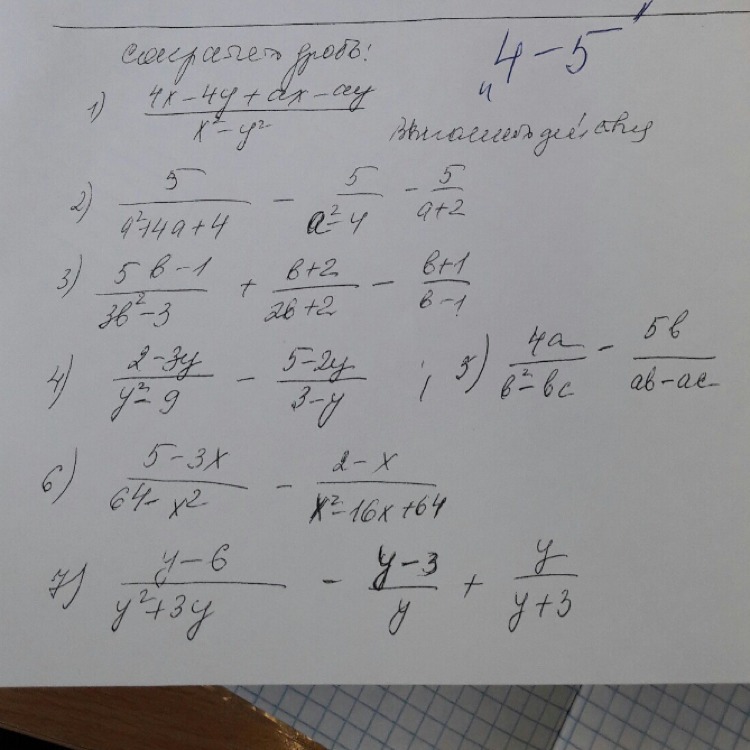 Сократить дробь!
"4-5"
1) (4x-4y+ax-ay)/(x²-y²)
Выполнить действия
2) 5/(a²+4a+4) - 5/(a²-4) - 5/(a+2)
3) (5b-1)/(3b²-3) + (b+2)/(2b+2) - (b+1)/(b-1)
4) (2-3y)/(y²-9) - (5-2y)/(3-y) ; 5) 4a/(b²-bc) - 5b/(ab-ac)
6) (5-3x)/(64-x²) - (2-x)/(x²-16x+64)
7) (y-6)/(y²+3y) - (y-3)/y + y/(y+3)